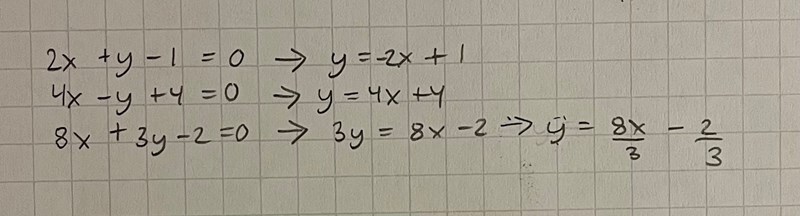 2x + y - 1 = 0 → y = -2x + 1
4x - y + 4 = 0 → y = 4x + 4
8x + 3y - 2 = 0 → 3y = 8x - 2 → y = 8x/3 - 2/3